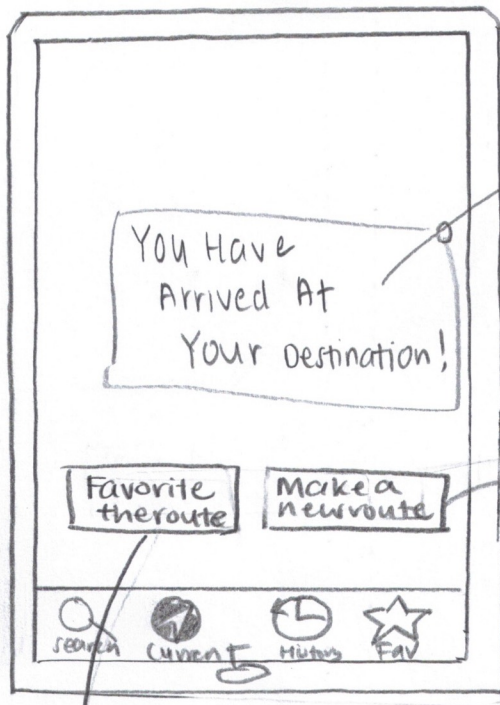 You Have
Arrived At
Your Destination!
Favorite
the route
Make a
new route
search
Current
History
Fav